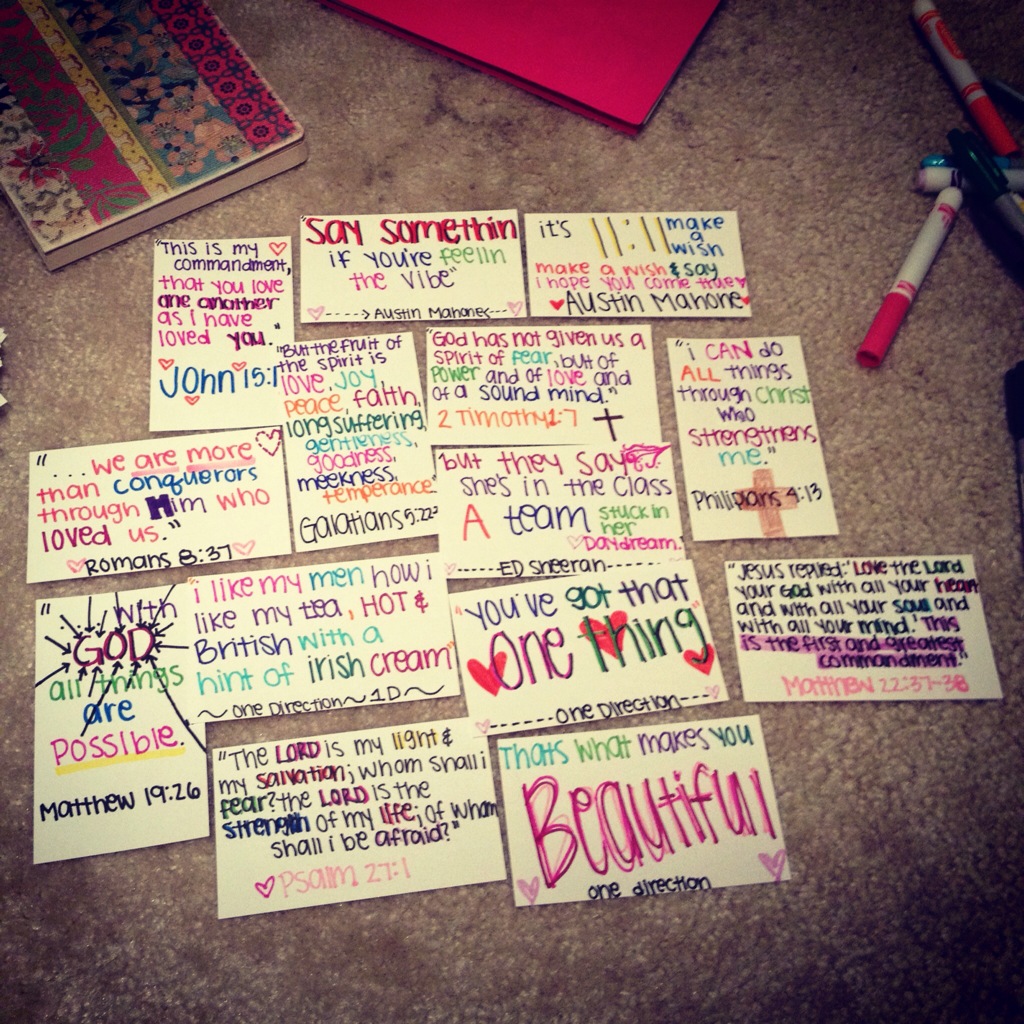 "This is my
commandment,
that you love
one another
as i have
loved you."
John 15:1
"Say somethin
if you're feelin
the vibe"
----> Austin Mahone<---
it's 11:11 make
a
wish
make a wish & say
i hope you come true
Austin Mahone
"But the fruit of
the spirit is
love, joy,
peace, faith,
longsuffering,
gentleness,
goodness,
meekness,
temperance"
Galatians 5:22
"God has not given us a
spirit of fear, but of
power and of love and
of a sound mind."
2 Timothy 1:7
"i CAN do
ALL things
through Christ
who
strengthens
me."
Philippians 4:13
"...we are more
than conquerors
through Him who
loved us."
Romans 8:37
"but they say
she's in the class
A team stuck in
her
Daydream."
------ED Sheeran------
with
GOD
all things
are
possible.
Matthew 19:26
"i like my men how i
like my tea, HOT &
British with a
hint of irish cream"
~ One Direction ~ 1D ~
"you've got that
one thing"
-------One Direction-----
"Jesus replied: 'Love the Lord
your God with all your heart
and with all your soul and
with all your mind.' This
is the first and greatest
commandment."
Matthew 22:37-38
"The LORD is my light &
my salvation; whom shall i
fear? the LORD is the
strength of my life; of whom
shall i be afraid?"
Psalm 27:1
Thats what makes you
Beautiful
one direction